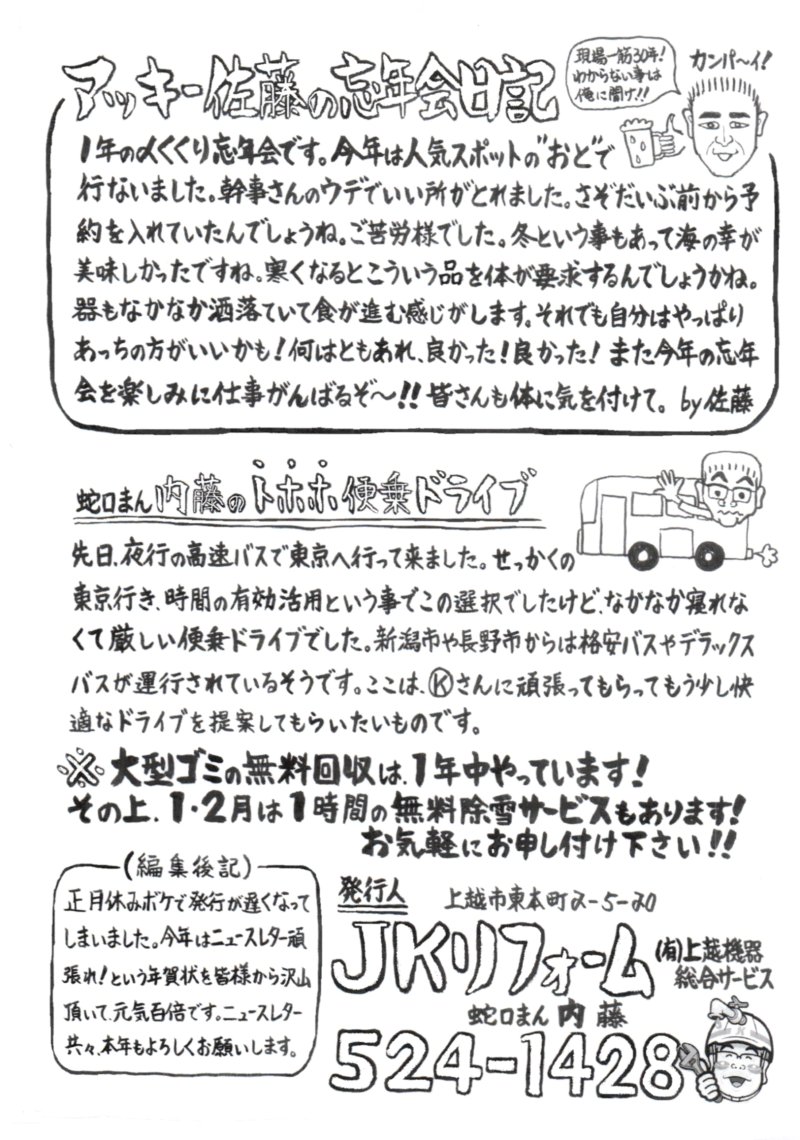 アッキー佐藤の忘年会日記
現場一筋30年!
わからない事は
俺に聞け!!
カンパ〜イ!
1年の〆くくり忘年会です。今年は人気スポットの"おと"で
行ないました。幹事さんのウデでいい所がとれました。さぞだいぶ前から予
約を入れていたんでしょうね。ご苦労様でした。冬という事もあって海の幸が
美味しかったですね。寒くなるとこういう品を体が要求するんでしょうかね。
器もなかなか洒落ていて食が進む感じがします。それでも自分はやっぱり
あっちの方がいいかも!何はともあれ、良かった!良かった! また今年の忘年
会を楽しみに仕事がんばるぞ〜!! 皆さんも体に気を付けて。 by 佐藤
蛇口まん 内藤のトホホ便乗ドライブ
先日、夜行の高速バスで東京へ行って来ました。せっかくの
東京行き、時間の有効活用という事でこの選択でしたけど、なかなか寝れな
くて厳しい便乗ドライブでした。新潟市や長野市からは格安バスやデラックス
バスが運行されているそうです。ここは、Ⓚさんに頑張ってもらってもう少し快
適なドライブを提案してもらいたいものです。
※ 大型ゴミの無料回収は、1年中やっています!
その上、1・2月は1時間の無料除雪サービスもあります!
お気軽にお申し付け下さい!!
(編集後記)
正月休みボケで発行が遅くなって
しまいました。今年はニュースレター頑
張れ!という年賀状を皆様から沢山
頂いて、元気百倍です。ニュースレター
共々、本年もよろしくお願いします。
発行人
上越市東本町2-5-20
JKリフォーム
(有)上越機器
総合サービス
蛇口まん 内藤
524-1428